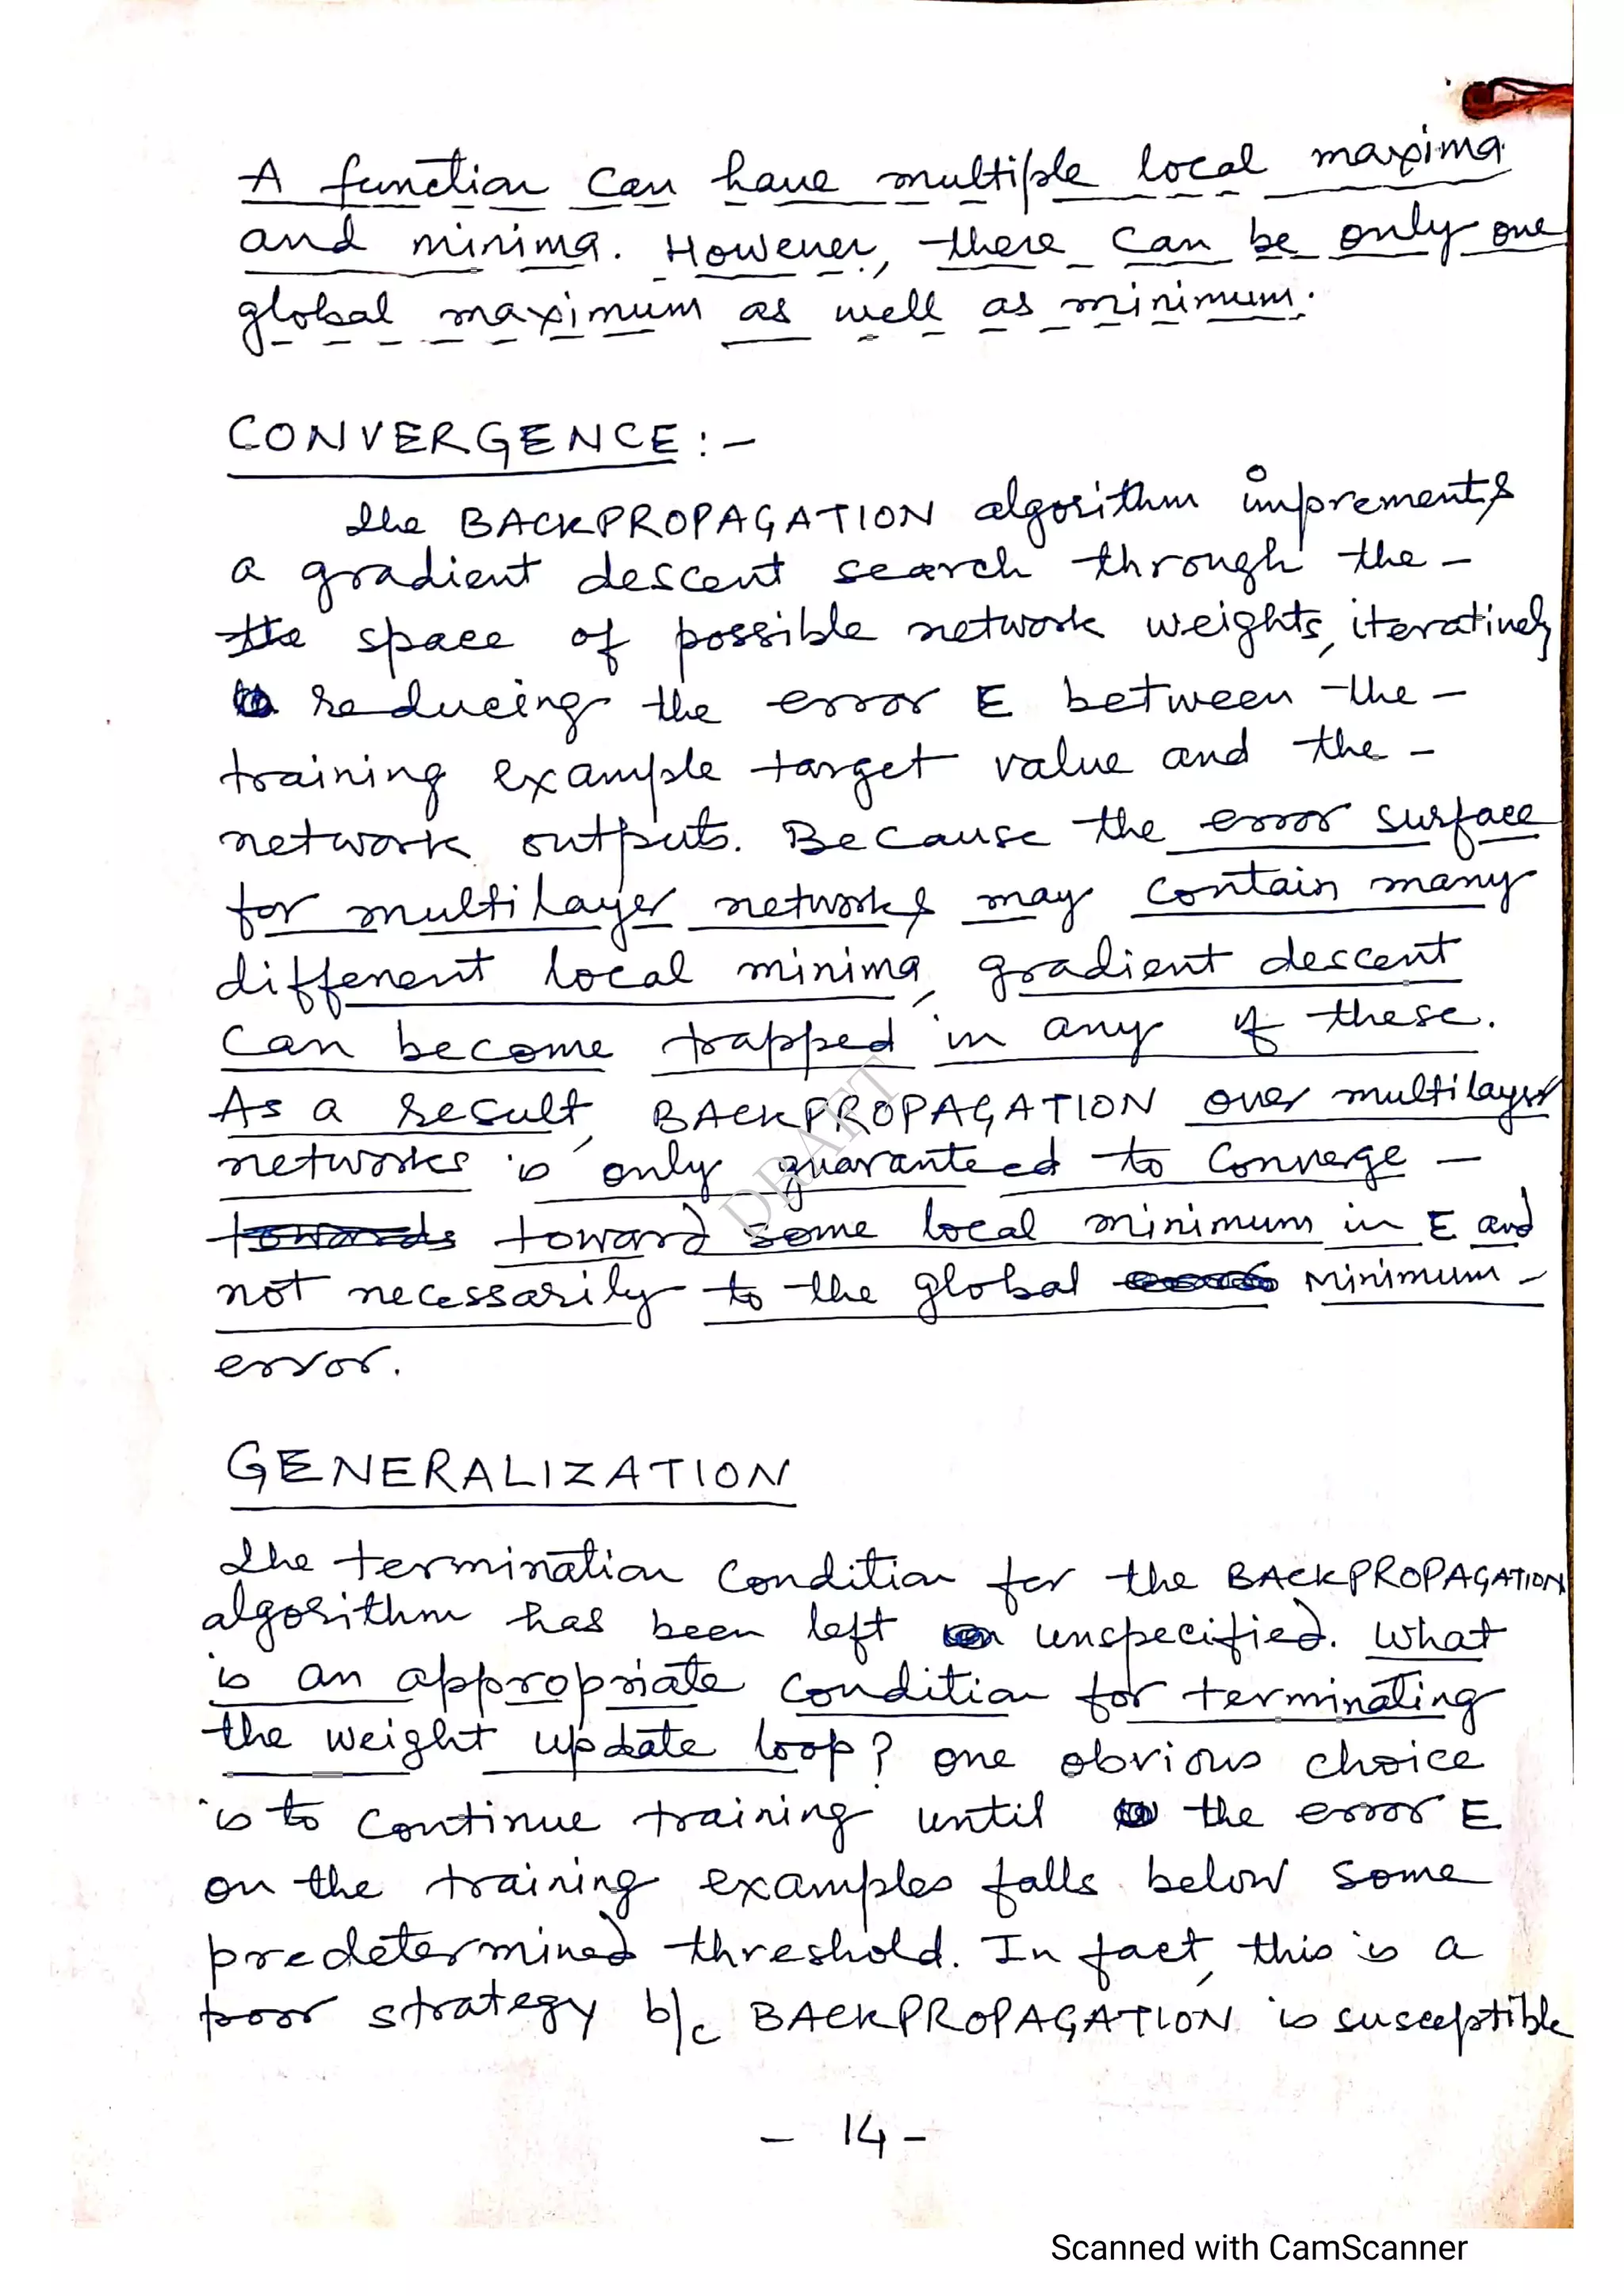 A function can have multiple local maxima
and minima. However, there can be only one
global maximum as well as minimum.
CONVERGENCE:-
The BACKPROPAGATION algorithm imprements
a gradient descent search through the -
the space of possible network weights, iteratively
reducing the error E between the -
training example target value and the -
network outputs. Because the error surface
for multilayer networks may contain many
different local minima, gradient descent
can become trapped in any of these.
As a result, BACKPROPAGATION over multilayer
networks is only guaranteed to converge -
towards toward some local minimum in E and
not necessarily to the global minimum -
error.
GENERALIZATION
The termination condition for the BACKPROPAGATION
algorithm has been left unspecified. What
is an appropriate condition for terminating
the weight update loop? One obvious choice
is to continue training until the error E
on the training examples falls below some
predetermined threshold. In fact, this is a
poor strategy b/c BACKPROPAGATION is susceptible
- 14 -
DRAFT
Scanned with CamScanner